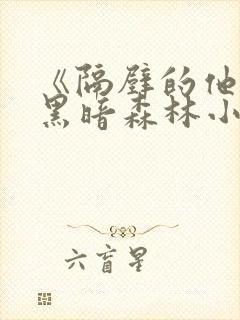 《隔壁的他
黑暗森林小
六盲星